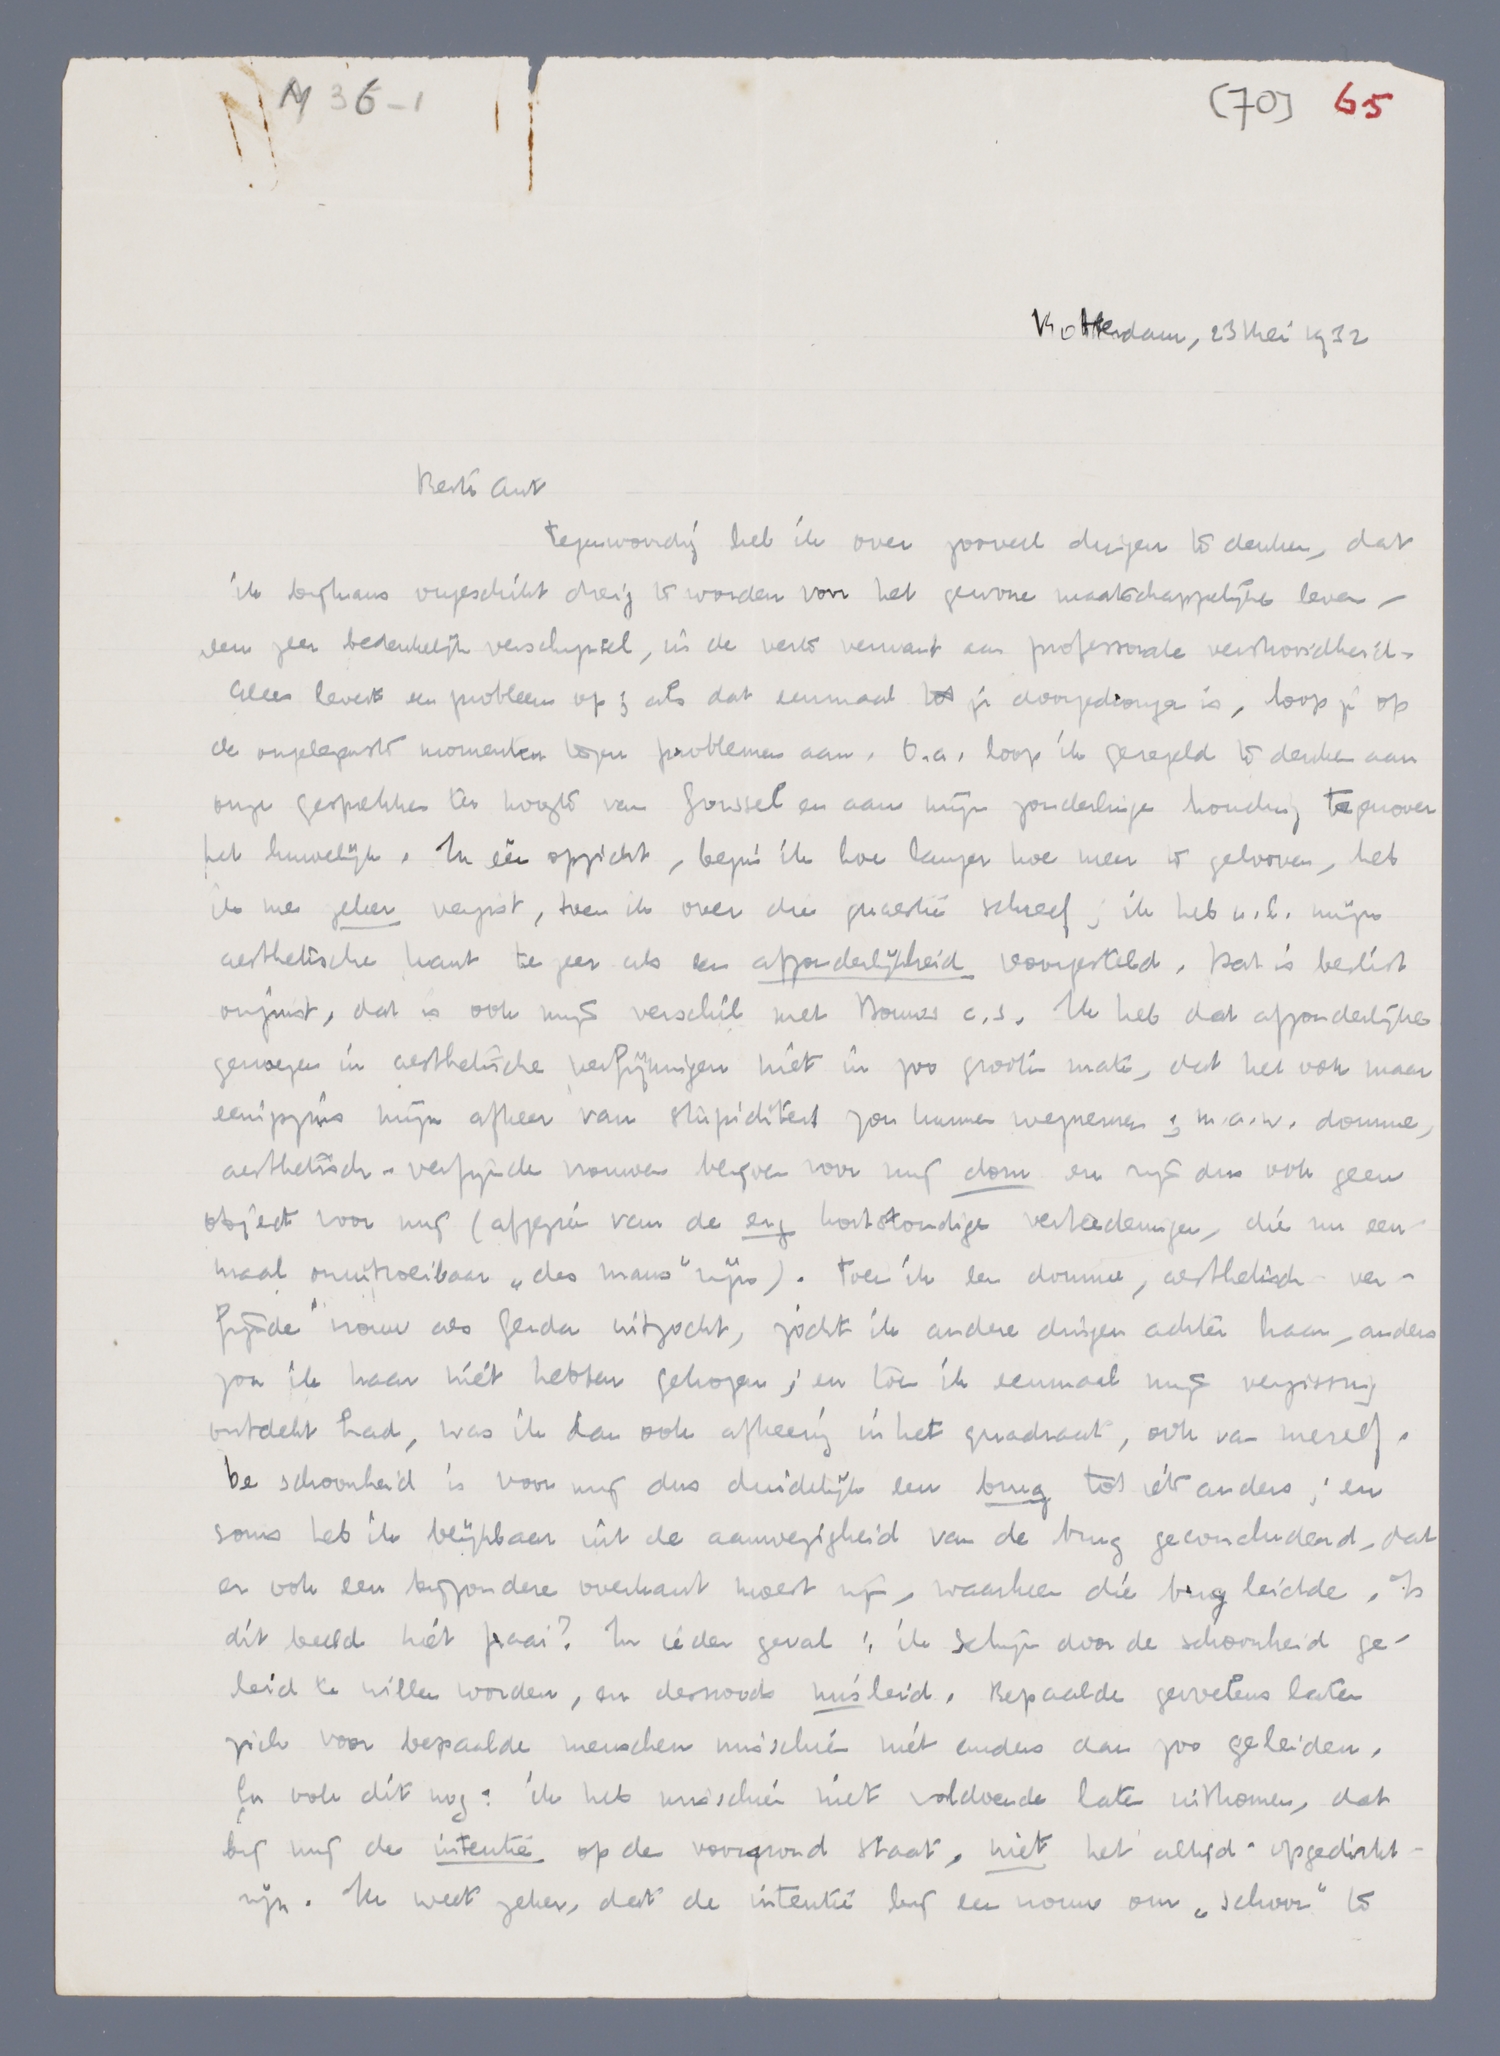 M 36-1
(70) 65
Rotterdam, 23 Mei 1932
Beste Ant
Tegenwoordig heb ik over zooveel dingen te denken, dat
ik langzaam ongeschikt dreig te worden voor het gewone maatschappelijke leven,
een zeer bedenkelijk verschijnsel, in de verte verwant aan professorale verstrooidheid.
Alles levert een probleem op; als dat eenmaal tot je doorgedrongen is, loop je op
de ongelegenste momenten tegen problemen aan. O.a. loop ik geregeld te denken aan
onze gesprekken ten huize van Gorssel en aan mijn zonderlinge houding tegenover
het huwelijk. In één opzicht, begin ik hoe langer hoe meer te gelooven, heb
ik me zeker vergist, toen ik over die quaestie schreef; ik heb n.l. mijn
aesthetische kant te zeer als een afzonderlijkheid voorgesteld. Dat is beslist
onjuist, dat is ook mijn verschil met Bouws c.s. Ik heb dat afzonderlijke
genoegen in aesthetische verfijningen niet in zoo groote mate, dat het ook maar
eenigszins mijn afkeer van stupiditeit zou kunnen wegnemen; m.a.w. domme,
aesthetisch-verfijnde vrouwen blijven voor mij dom en zijn dus ook geen
object voor mij (afgezien van de erg kortstondige verteederingen, die nu een-
maal onuitroeibaar „des mans" zijn). Toen ik een domme, aesthetisch-ver-
fijnde vrouw als Gerda uitzocht, zocht ik andere dingen achter haar, anders
zou ik haar niet hebben gekozen; en toen ik eenmaal mijn vergissing
ontdekt had, was ik dan ook afkeerig in het quadraat, ook van mezelf.
De schoonheid is voor mij dus duidelijk een brug tot iets anders; en
soms heb ik blijkbaar uit de aanwezigheid van de brug geconcludeerd, dat
er ook een bijzondere overkant moest zijn, waarheen die brug leidde. Is
dit beeld niet fraai? In ieder geval: ik schijn door de schoonheid ge-
leid te willen worden, en desnoods misleid. Bepaalde gevoelens laten
zich voor bepaalde menschen misschien niet anders dan zoo geleiden.
En ook dit nog: ik heb misschien niet voldoende laten uitkomen, dat
bij mij de intentie op den voorgrond staat, niet het altijd-opgedirkt-
zijn. Ik weet zeker, dat de intentie bij een vrouw om „schoon" te